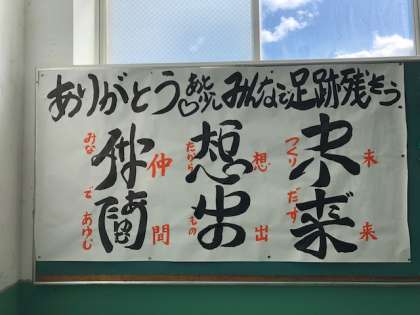 ありがとうあと少しみんなで足跡残そう
未来
つくりだす
未来
想出
たからもの
想出
仲間
みなであゆむ
仲間